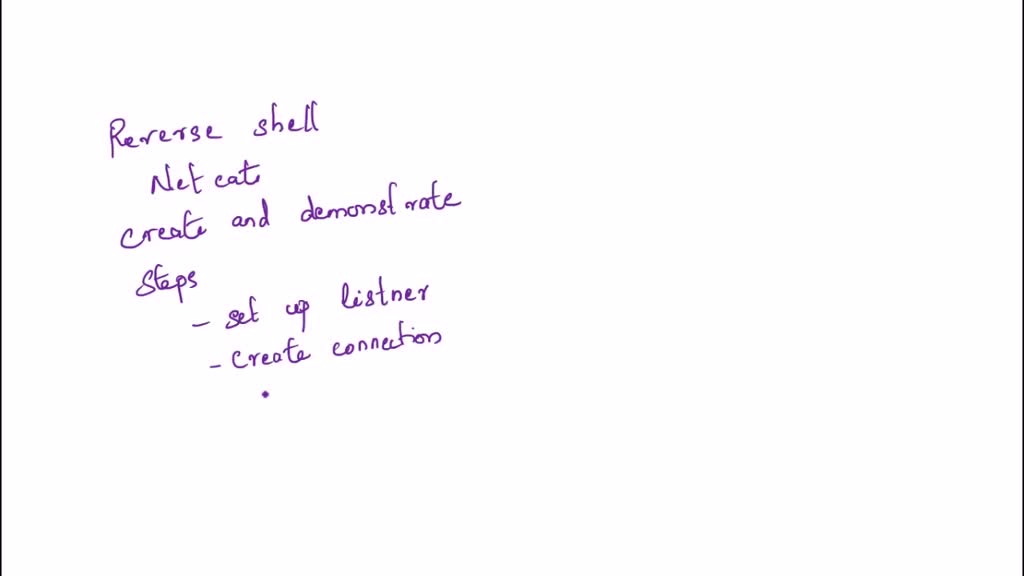 Reverse shell
Netcat
create and demonstrate
Steps
- set up listner
- create connection